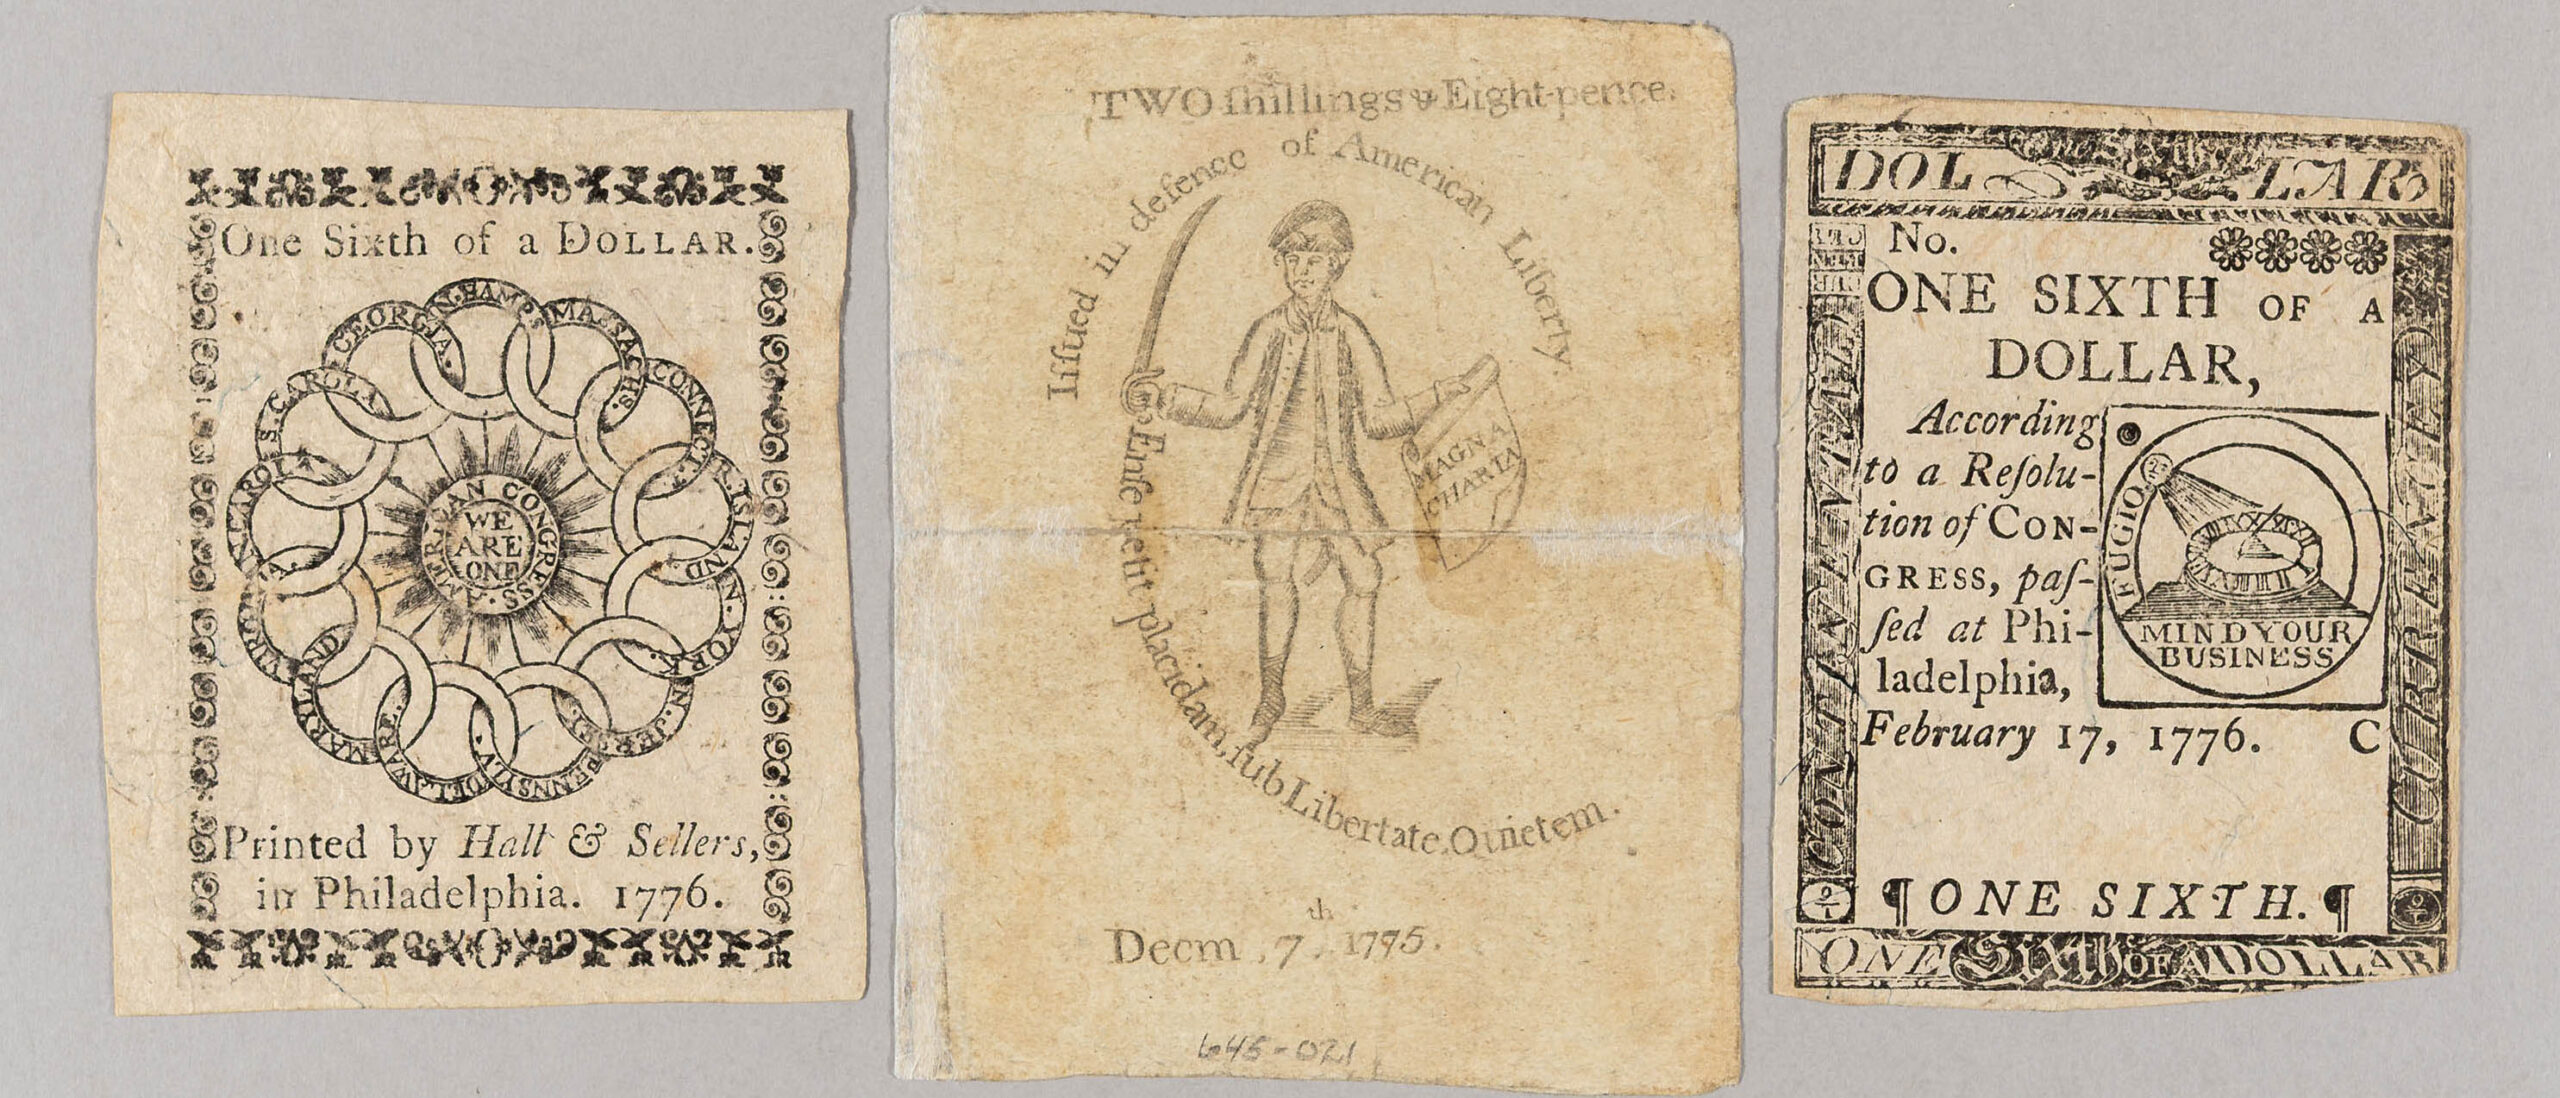 One Sixth of a DOLLAR.
N. HAMPS.
MASSACHS.
CONNECT.
R. ISLAND.
N. YORK
N. JERSE.
PENNSYLV.
DELAWARE.
MARYLAND
VIRGINIA.
N. CAROL
S. CAROLIN
GEORGIA.
AMERICAN CONGRESS.
WE
ARE
ONE
Printed by Hall & Sellers,
in Philadelphia. 1776.
TWO ſhillings & Eight-pence.
Iſſued in defence of American Liberty.
MAGNA
CHARTA
Enſe petit placidam, ſub Libertate, Quietem.
Decm. 7th. 1775.
645-021
DOLLAR
No.
ONE SIXTH OF A
DOLLAR,
According
to a Reſolu-
tion of CON-
GRESS, paſ-
ſed at Phi-
ladelphia,
February 17, 1776. C
FUGIO
MIND YOUR
BUSINESS
CONTINENTAL
CURRENCY
¶ ONE SIXTH. ¶
ONE SIXTH OF A DOLLAR